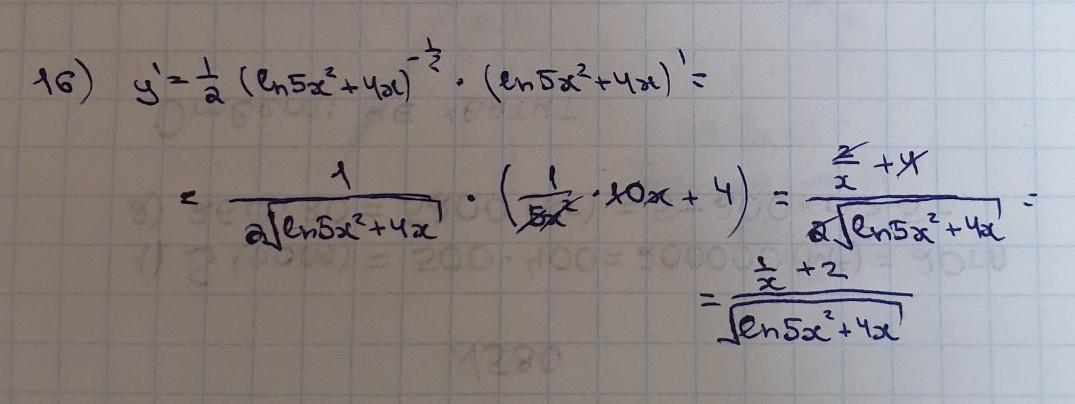 16) y' = 1/2 (ln5x² + 4x)^(-1/2) · (ln5x² + 4x)' =
= 1/(2√(ln5x² + 4x)) · (1/(5x²) · 10x + 4) = (2/x + 4)/(2√(ln5x² + 4x)) =
= (1/x + 2)/√(ln5x² + 4x)